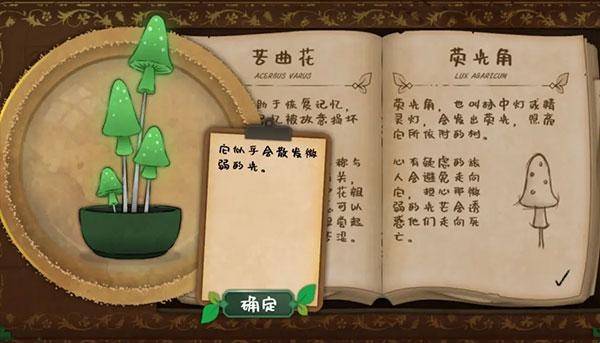 苦曲花
ACERBUS VARUS
助于恢复记忆,
忆被故意损坏
称与
关,
可以
荧光角
LUX AGARICUM
荧光角,也叫林中灯或精
灵灯,会发出荧光,照亮
它所依附的树。
心有疑虑的旅
人会避免走向
它,担心那微
弱的光芒会诱
惑他们走向死
亡。
它似乎会散发微
弱的光。
确定